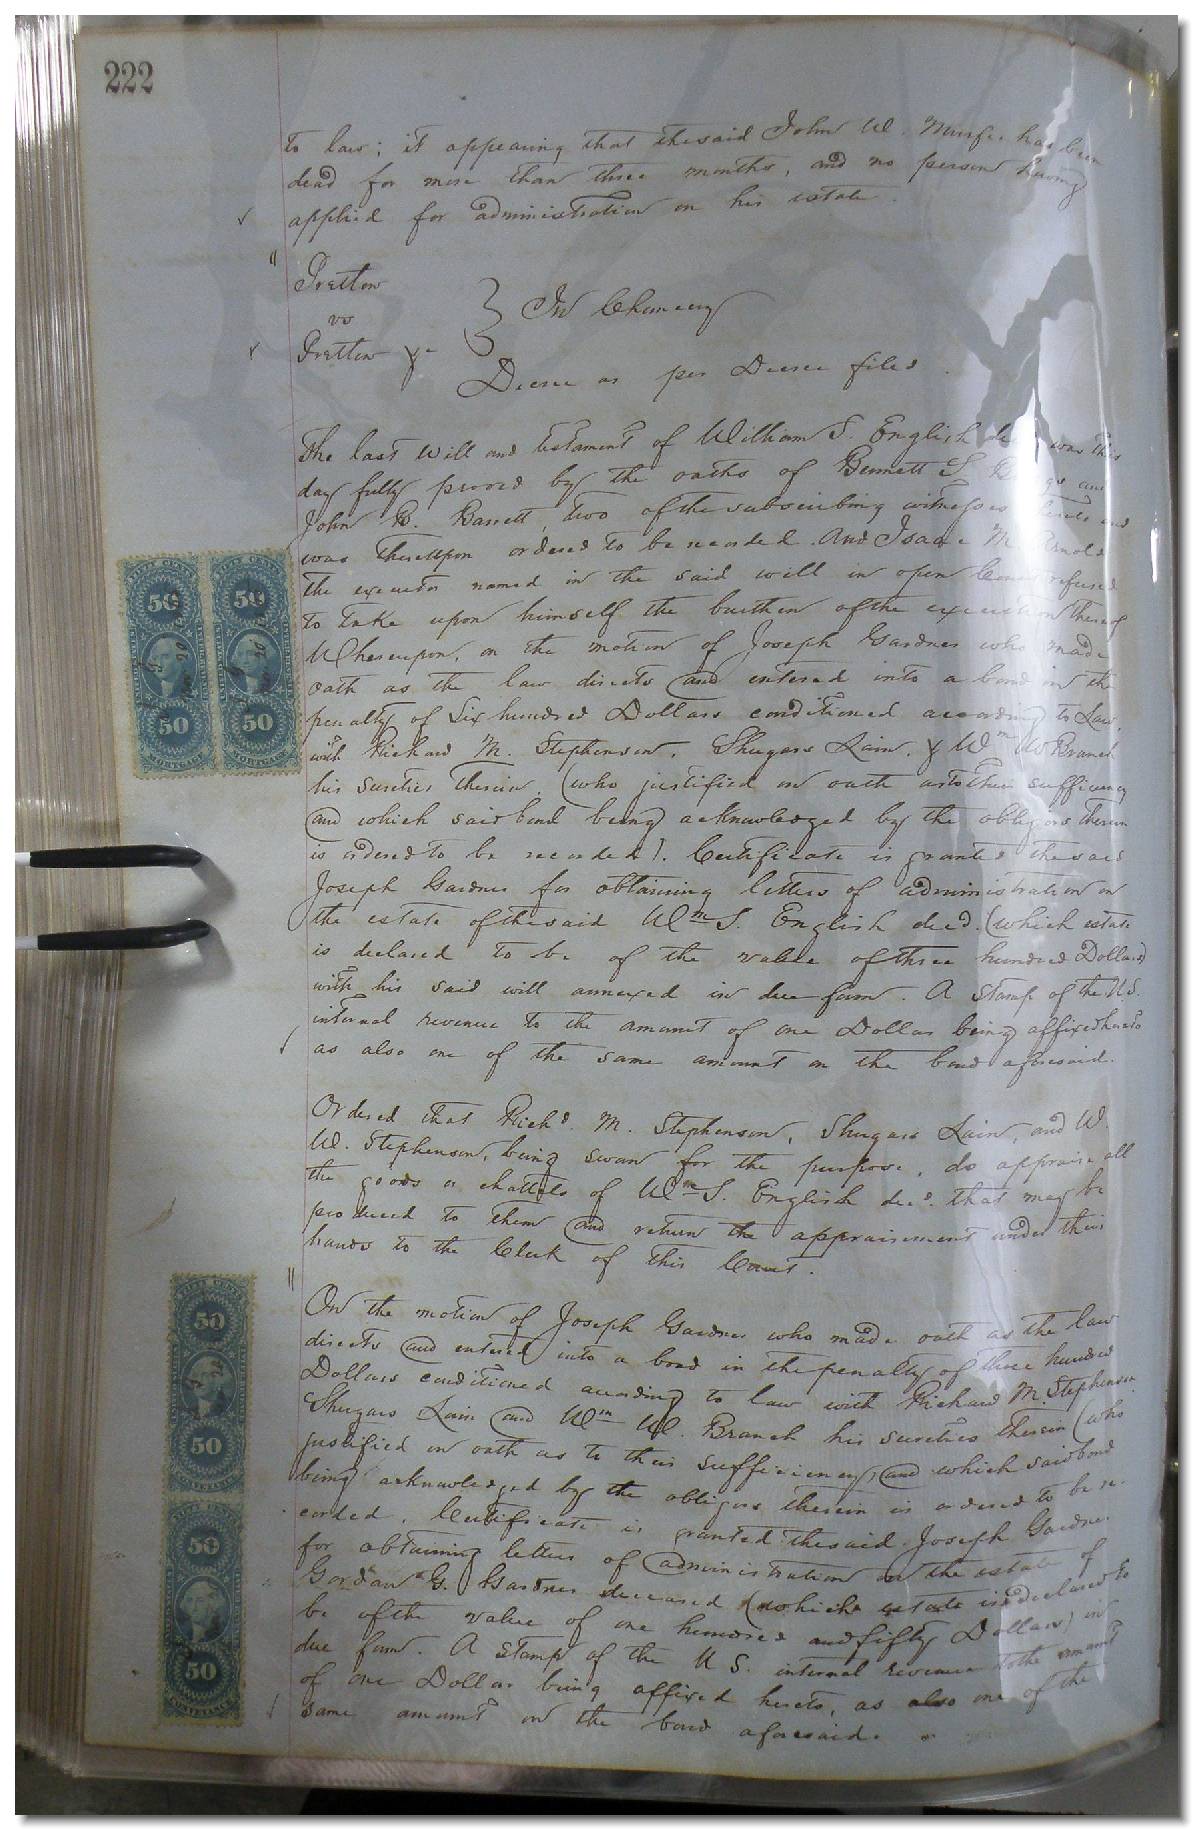 222
to law; it appearing that the said John W. has been
dead for more than three months, and no person having
applied for administration on his estate.
Pretlow
vs
Pretlow &c
In Chancery
Decree as per Decree filed.
The last will and testament of William S. English was this
day fully proved by the oaths of Bennett and
John B. Barrett, two of the subscribing witnesses hereto and
was thereupon ordered to be recorded. And Isaac M. Arnold
the executor named in the said will in open Court refused
to take upon himself the burthen of the execution thereof
Whereupon, on the motion of Joseph Gardner who made
oath as the law directs and entered into a bond in the
penalty of Six hundred Dollars conditioned according to Law,
with Richard M. Stephenson, Shugars Lain, & Wm W Branch
his sureties therein. (who justified on oath as to their sufficiency
and which said bond being acknowledged by the obligors therein
is ordered to be recorded). Certificate is granted the said
Joseph Gardner for obtaining letters of administration on
the estate of the said Wm S. English decd. (which estate
is declared to be of the value of three hundred Dollars)
with his said will annexed in due form. A Stamp of the U.S.
internal revenue to the amount of one Dollar being affixed hereto
as also one of the same amount on the bond aforesaid.
Ordered that Richd. M. Stephenson, Shugars Lain, and W.
W. Stephenson, being sworn for the purpose, do appraise all
the goods & chattels of Wm S. English decd. that may be
produced to them and return the appraisement under their
hands to the Clerk of this Court.
On the motion of Joseph Gardner who made oath as the law
directs and entered into a bond in the penalty of three hundred
Dollars conditioned according to law with Richard M. Stephenson
Shugars Lain and Wm W. Branch his sureties therein (who
justified on oath as to their sufficiency) and which said bond
being acknowledged by the obligors therein is ordered to be re
corded. Certificate is granted the said Joseph Gardner
for obtaining letters of administration on the estate of
Gordan G. Gardner deceased (which estate is declared to
be of the value of one hundred and fifty Dollars) in
due form. A stamp of the U S. internal revenue to the amount
of one Dollar being affixed hereto, as also one of the
same amount on the bond aforesaid.
50 50
50 50
MORTGAGE MORTGAGE
50
50
50
50
CONVEYANCE